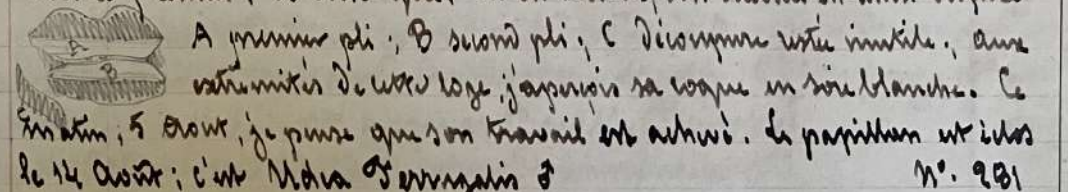 A premier pli ; B second pli ; C découpure restée inutile ; aux
extrémités de cette loge, j'aperçois sa coque en soie blanche. Ce
matin, 5 Août, je pense que son travail est achevé. Le papillon est éclos
le 14 Août ; c'est Udea Ferrugalis ♂ N°. 231
A
B